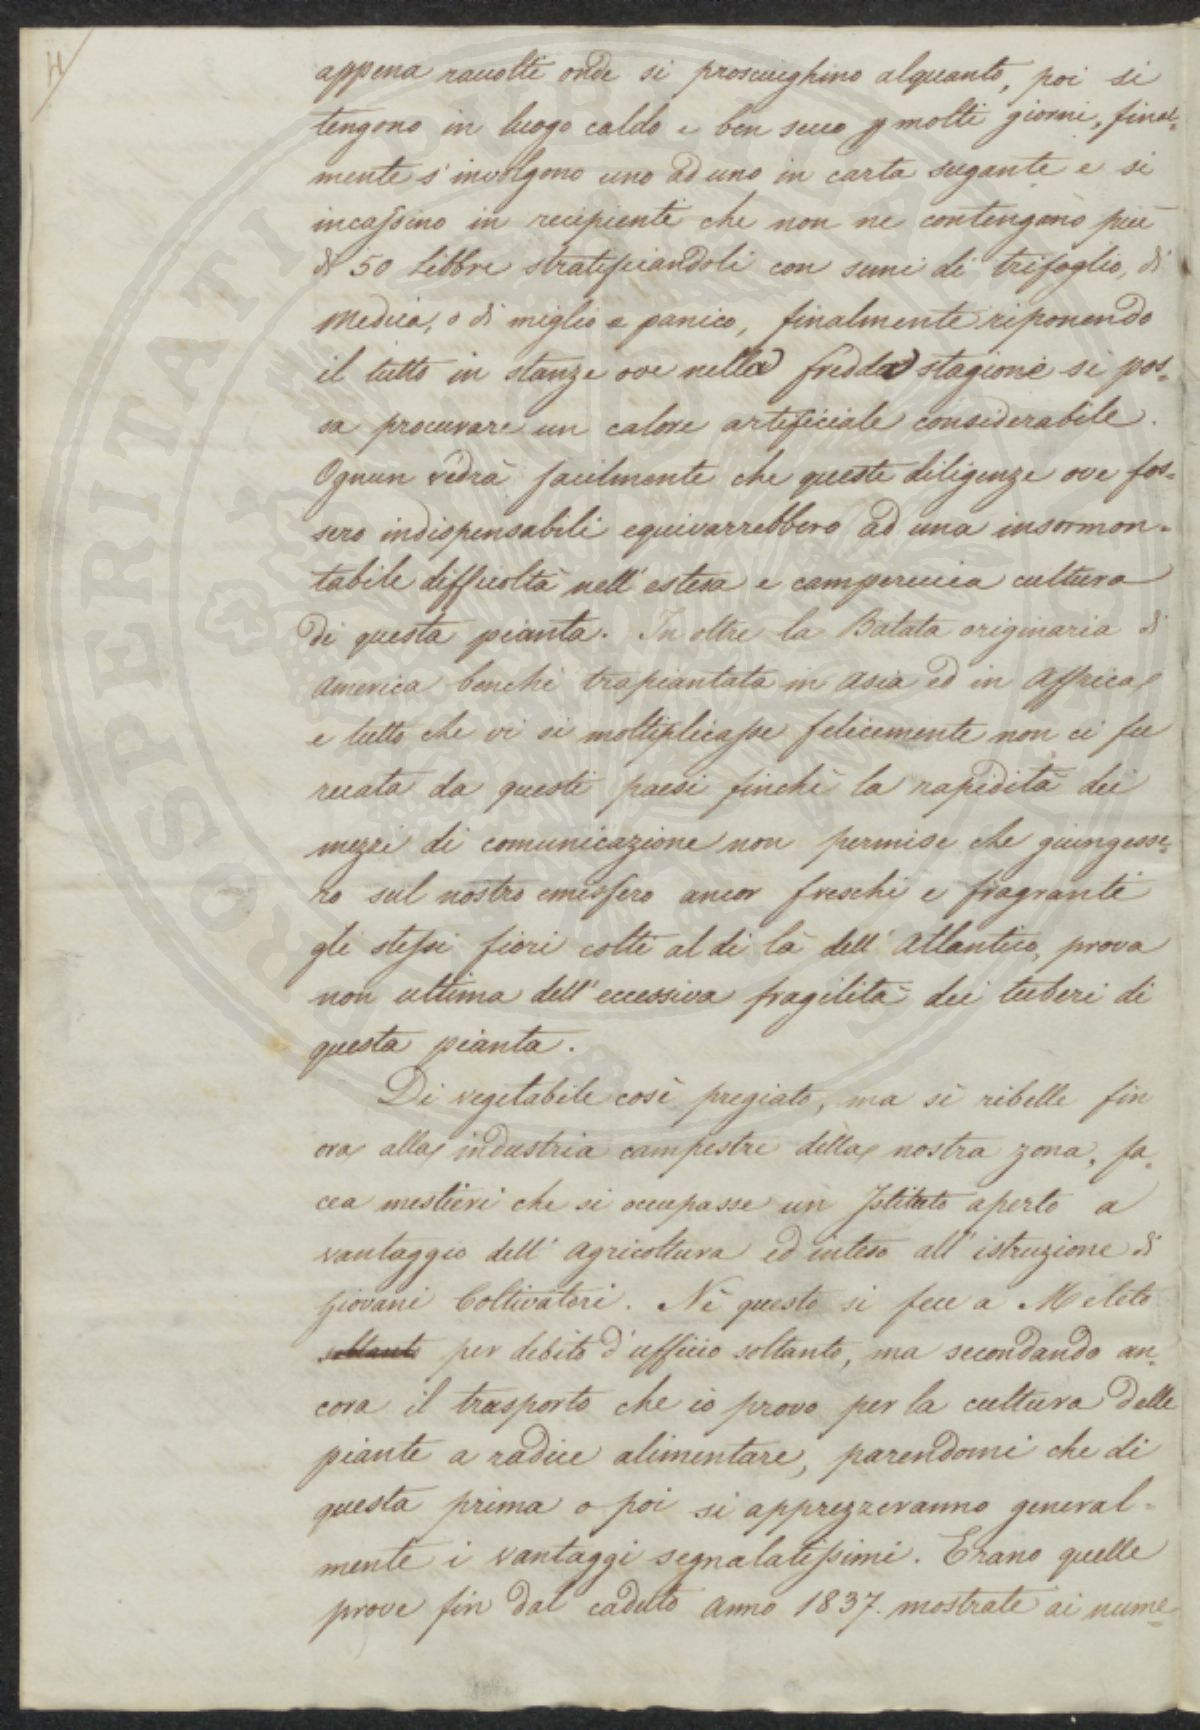 4
appena raccolti onde si prosciughino alquanto, poi si
tengono in luogo caldo e ben secco p molti giorni, final=
mente s'involgono uno ad uno in carta sugante e si
incassino in recipienti che non ne contengano più
di 50 Libbre stratificiandoli con semi di trifoglio, di
Medica, o di miglio e panico, finalmente riponendo
il tutto in stanze ove nella fredda stagione si pos=
sa procurare un calore artificiale considerabile.
Ognun vedrà facilmente che queste diligenze ove fos=
sero indispensabili equivarrebbero ad una insormon=
tabile difficoltà nell'estesa e campereccia cultura
di questa pianta. In oltre la Batata originaria di
America benchè trapiantata in Asia ed in Affrica
e tutto che vi si moltiplicasse felicemente non ci fu
recata da questi paesi finchè la rapidità dei
mezzi di comunicazione non permise che giungesse=
ro sul nostro emisfero ancor freschi e fragranti
gli stessi fiori colti al di là dell'Atlantico, prova
non ultima dell'eccessiva fragilità dei tuberi di
questa pianta.
Di vegetabile così pregiato, ma sì ribelle fin
ora alla industria campestre della nostra zona, fa=
cea mestieri che si occupasse un Istituto aperto a
vantaggio dell'Agricoltura ed inteso all'istruzione di
Giovani Coltivatori. Nè questo si fece a Meleto
soltanto per debito d'ufficio soltanto, ma secondando an=
cora il trasporto che io provo per la cultura delle
piante a radice alimentare, parendomi che di
questa prima o poi si apprezzeranno general=
mente i vantaggi segnalatissimi. Erano quelle
prove fin dal caduto Anno 1837. mostrate ai nume=
PROSPERITATI PUBLICAE